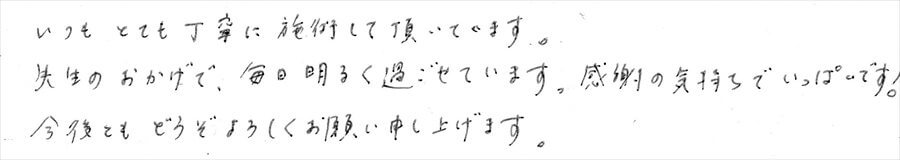 いつもとても丁寧に施術して頂いてます。
先生のおかげで、毎日明るく過ごせています。感謝の気持ちでいっぱいです!
今後ともどうぞよろしくお願い申し上げます。